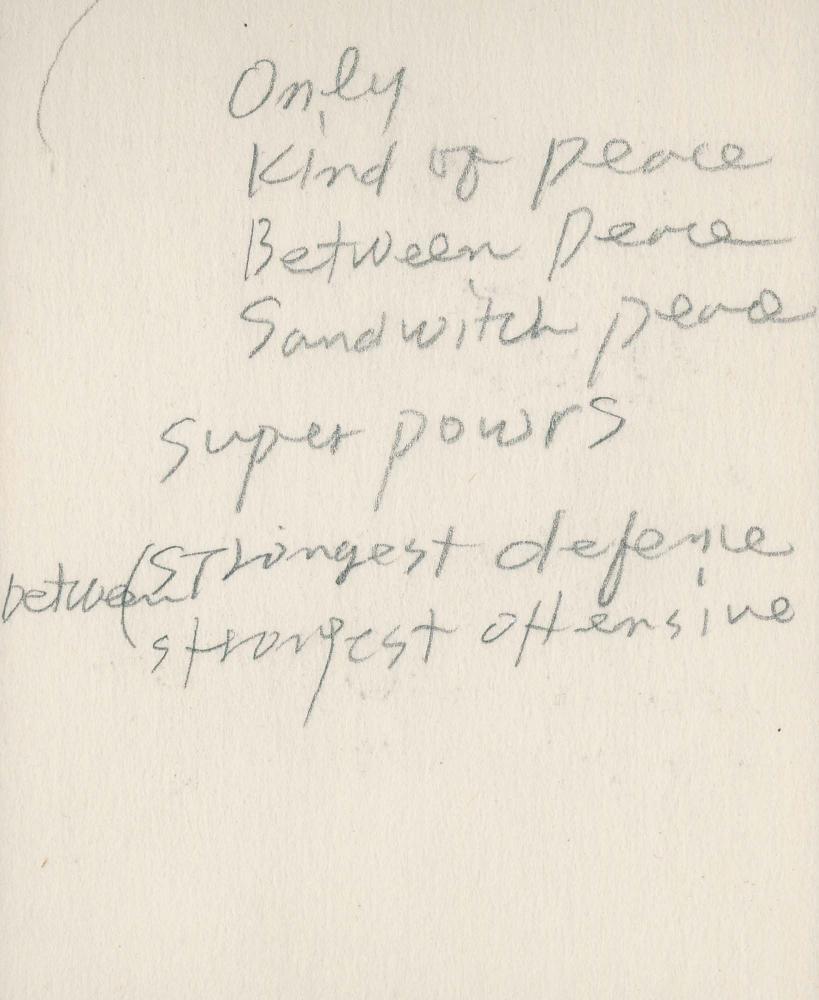 Only
Kind of peace
Between peace
Sandwitch peace
super powrs
between (Strongest defense
strongest offensive